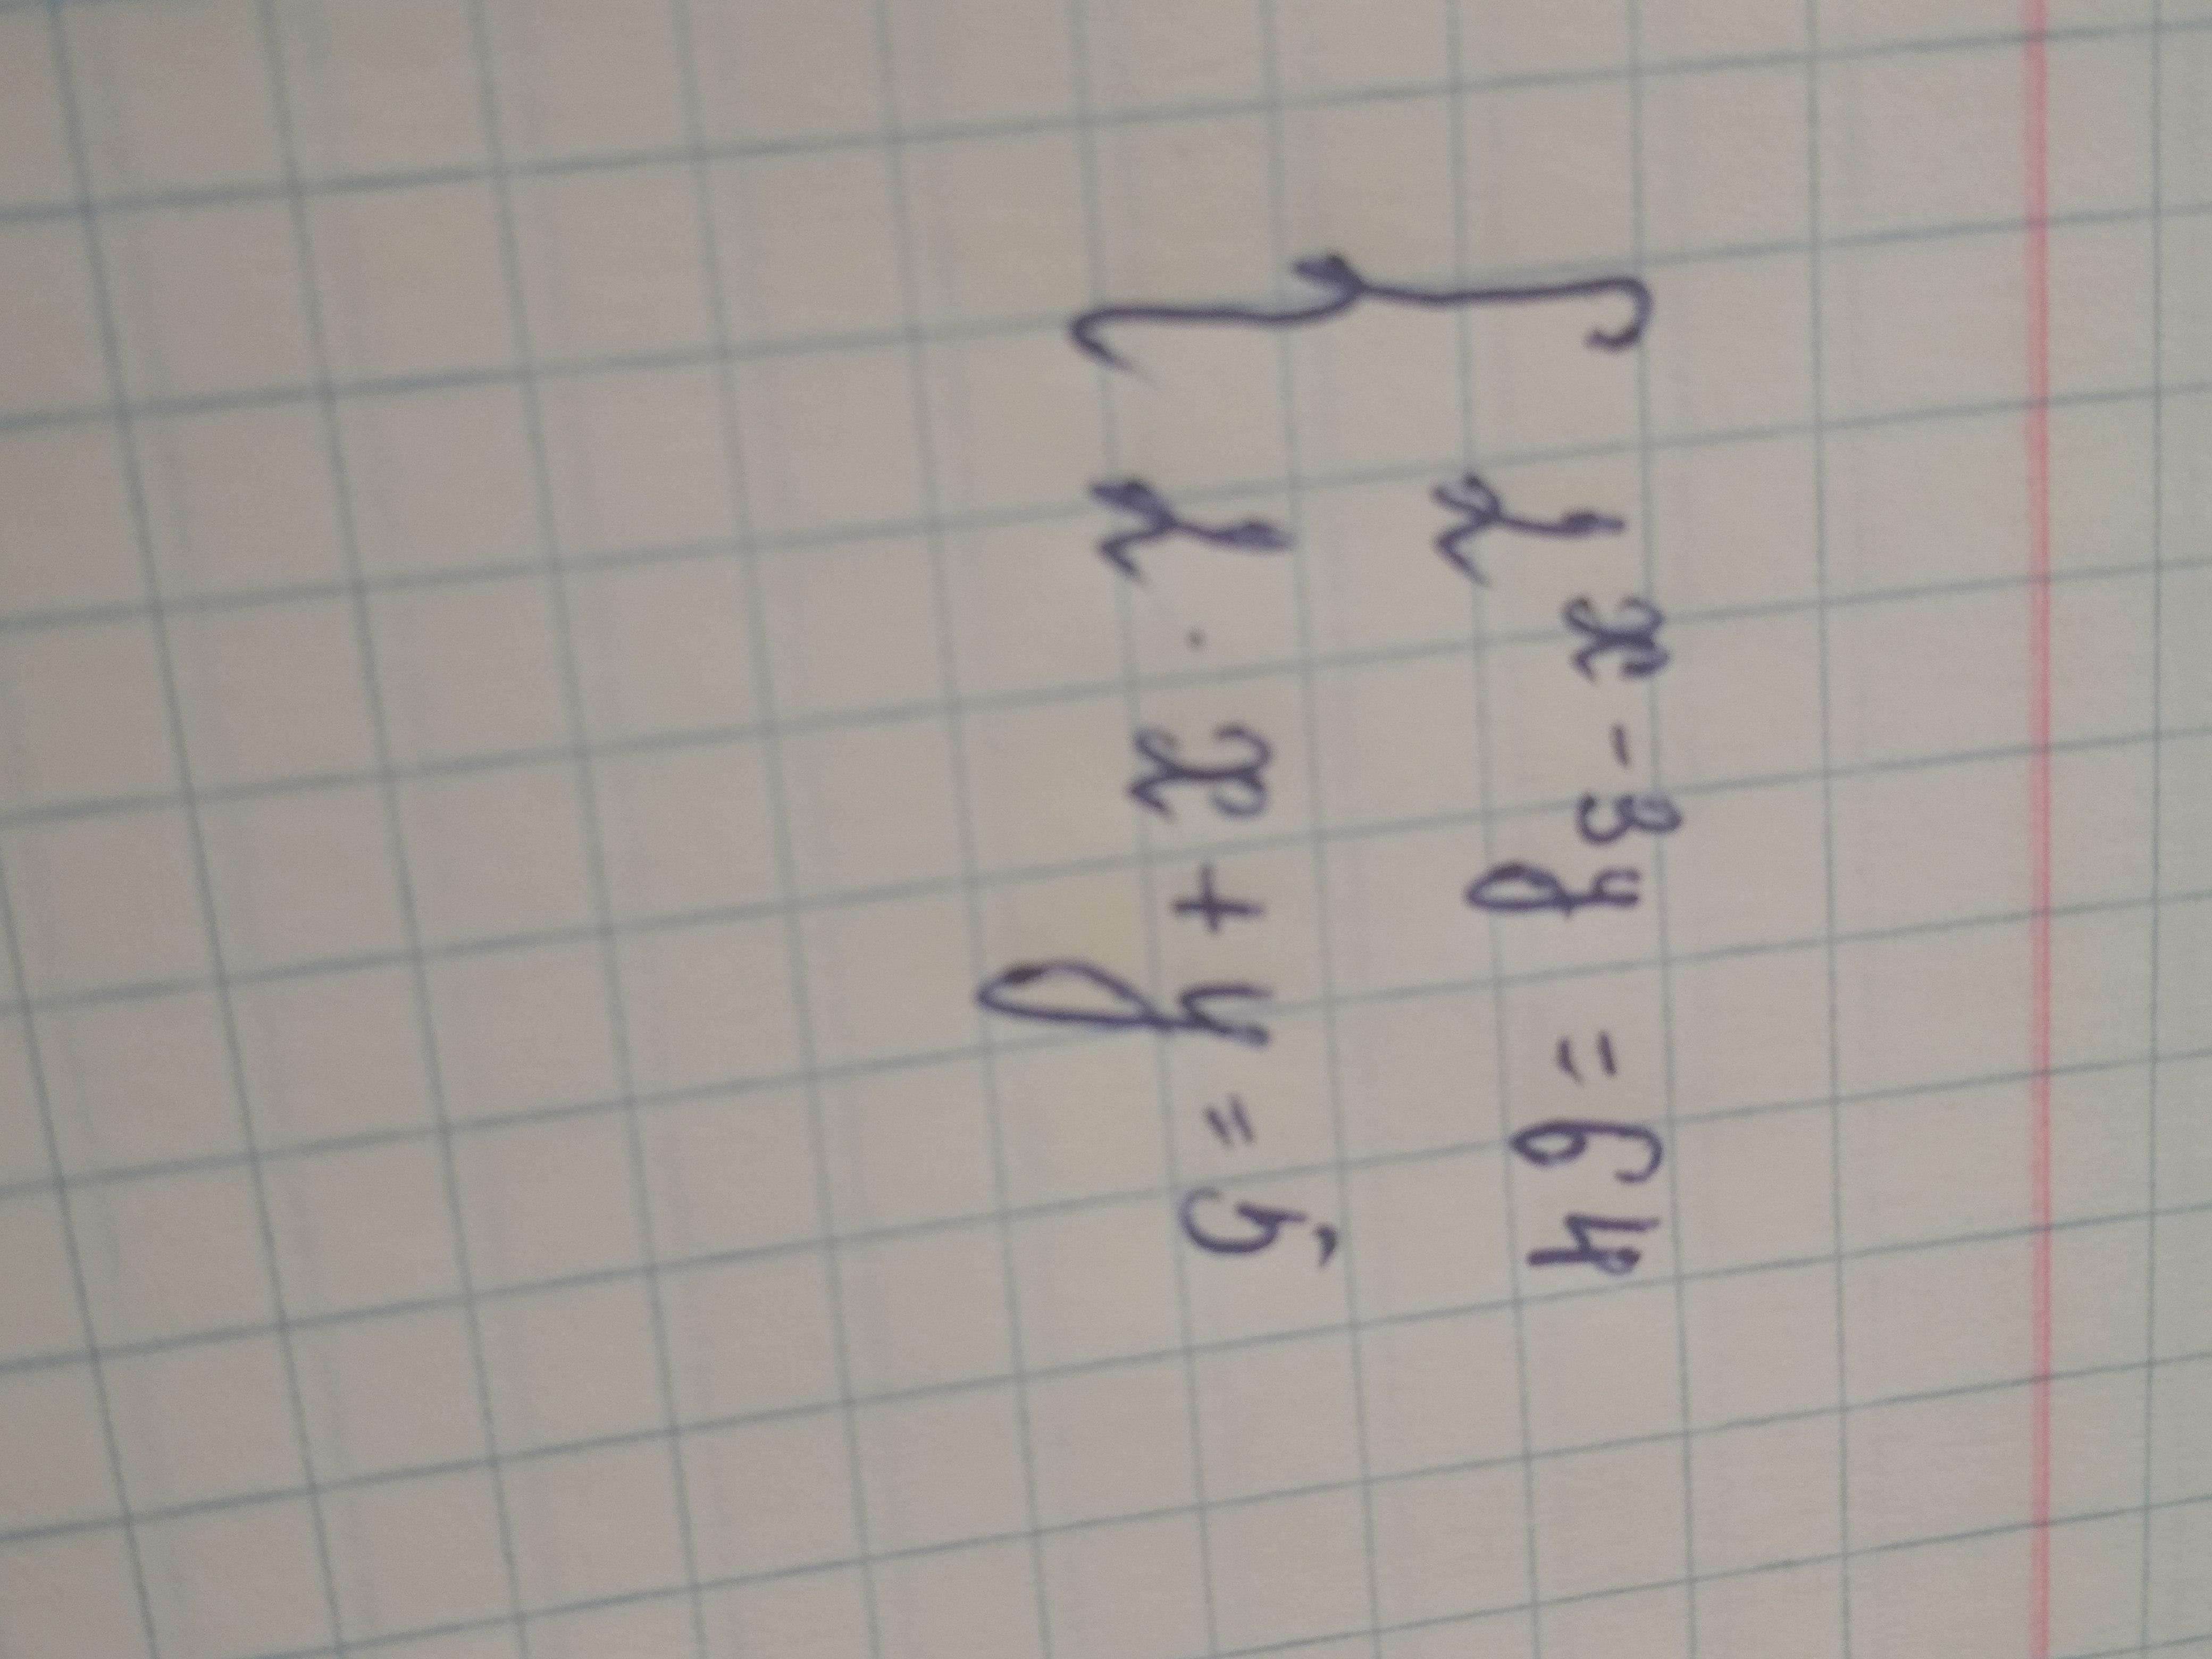 { 2^{x-3y} = 64
2 · x + y = 5